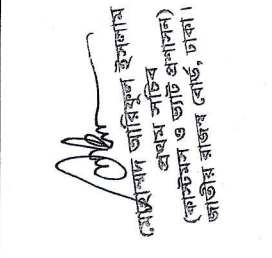 (মোহাম্মদ আমিনুল ইসলাম)
প্রথম সচিব
(কাস্টমস ও ভ্যাট প্রশাসন)
জাতীয় রাজস্ব বোর্ড, ঢাকা।